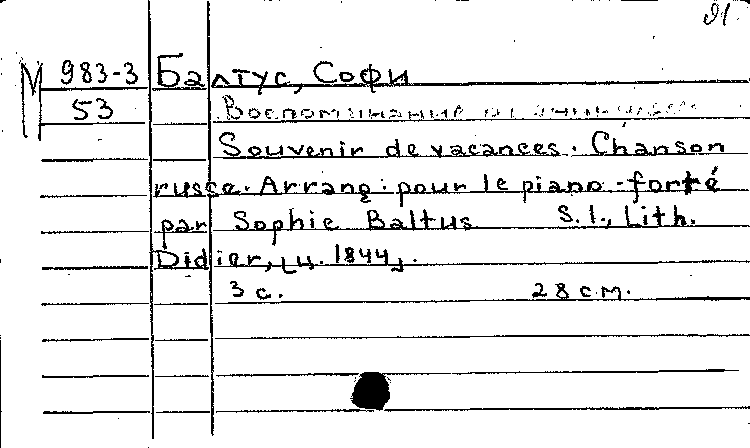 91
М 983-3 Балтус, Софи
53 Воспоминание
Souvenir de vacances. Chanson
russe. Arrang: pour le piano-forté
par Sophie Baltus S.l., Lith.
Didier, [ц. 1844].
3 с. 28 см.